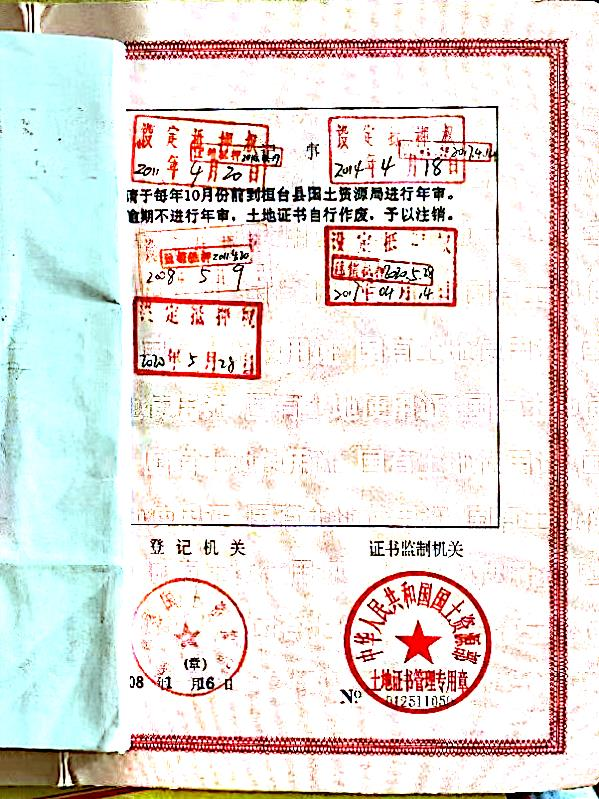 设定抵押权
2011年4月20日
注销抵押
事
设定抵押权
2014年4月18日
请于每年10月份前到桓台县国土资源局进行年审。
逾期不进行年审，土地证书自行作废，予以注销。
注销抵押2011.4.20
2008年5月9
设定抵押权
注销抵押2020.5.28
2017年04月14日
设定抵押权
2020年5月28日
登记机关
证书监制机关
国土资
(章)
08 1月16日
中华人民共和国国土资源部
土地证书管理专用章
№ 01251105